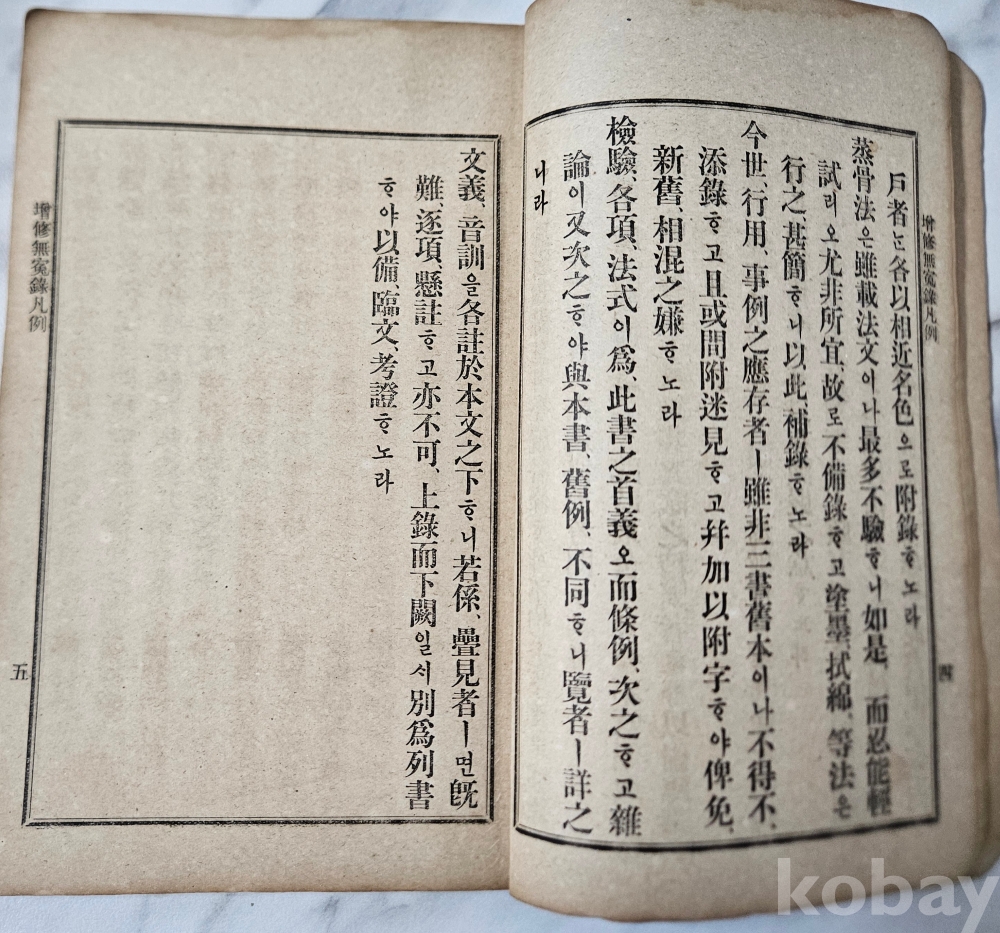 增修無寃錄凡例
戶者는各以相近名色으로附錄ᄒᆞ노라
蒸骨法은雖載法文이나最多不驗ᄒᆞ니如是、而忍能輕
試리오尤非所宜、故로不備錄ᄒᆞ고塗墨、拭綿、等法은
行之、甚簡ᄒᆞ니以此、補錄ᄒᆞ노라
今世、行用、事例之應存者ㅣ雖非三書舊本이나不得不、
添錄ᄒᆞ고且或間附迷見ᄒᆞ고幷加以附字ᄒᆞ야俾免、
新舊、相混之嫌ᄒᆞ노라
檢驗、各項、法式이爲、此書之首義오而條例、次之ᄒᆞ고雜
論이又次之ᄒᆞ야與本書、舊例、不同ᄒᆞ니覽者ㅣ詳之
니라
四
文義、音訓을各註於本文之下ᄒᆞ니若係、疊見者ㅣ면旣
難、逐項、懸註ᄒᆞ고亦不可、上錄而下闕일ᄉᆡ別爲列書
ᄒᆞ야以備、臨文、考證ᄒᆞ노라
增修無寃錄凡例
五
kobay